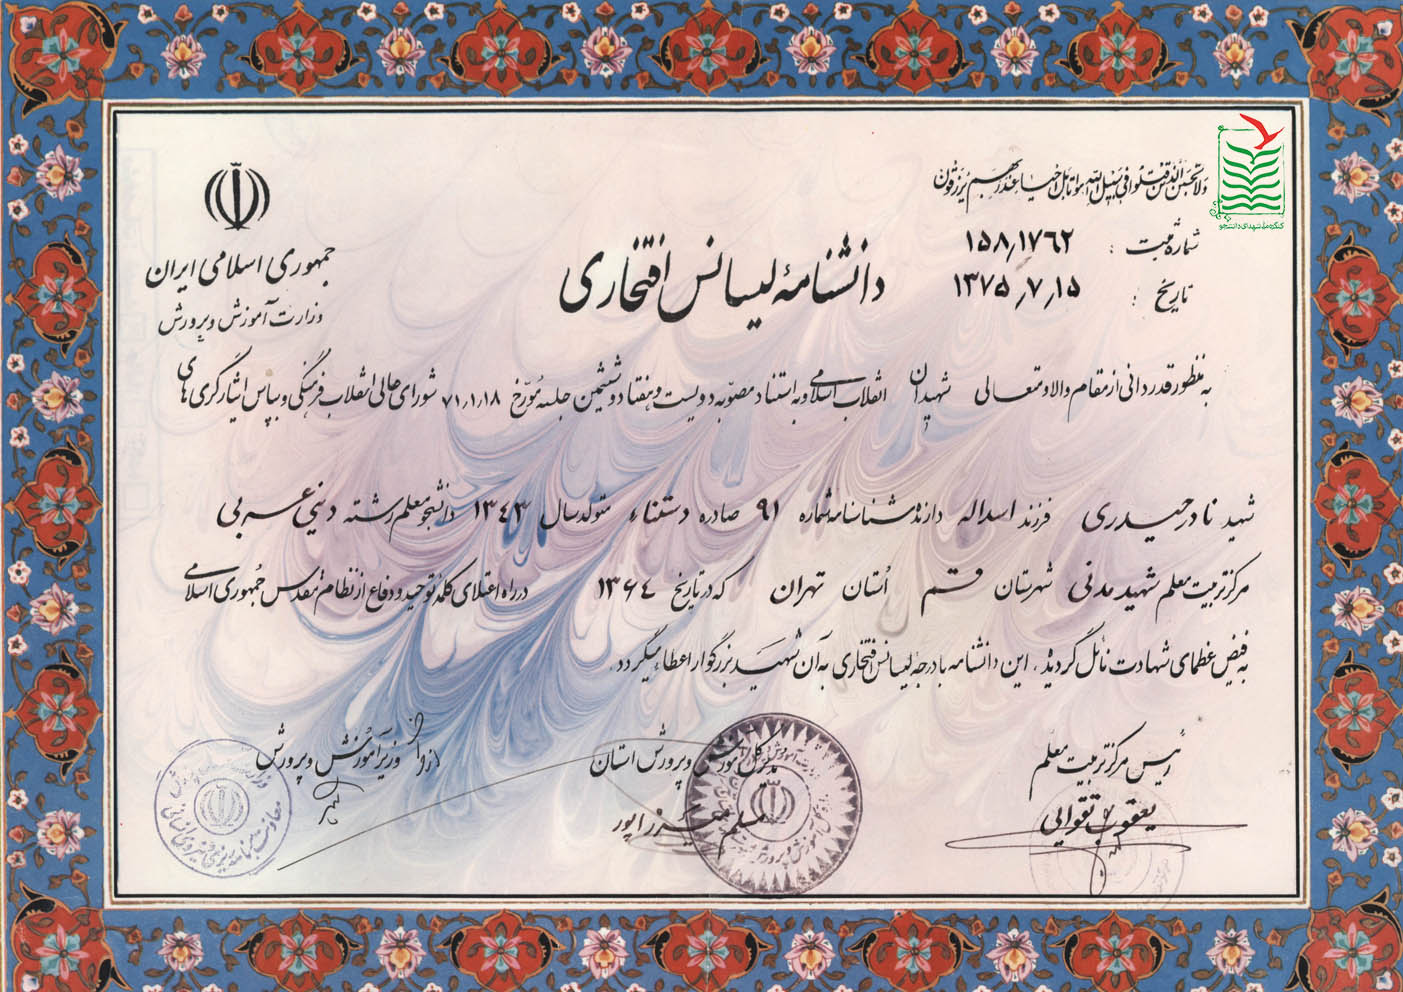 ولا تحسبن الذین قتلوا فی سبیل الله امواتا بل احیاء عند ربهم یرزقون
کنگره ملی شهدای دانشجو
جمهوری اسلامی ایران
وزارت آموزش و پرورش
شماره ثبت : ۱۵۸٫۱۷۶۲
تاریخ : ۱۳۷۵٫۷٫۱۵
دانشنامهٔ لیسانس افتخاری
به منظور قدردانی از مقام والا و متعالی شهیدان انقلاب اسلامی و به استناد مصوبه دویست و هفتاد و ششمین جلسه مورخ ۷۱٫۱٫۱۸ شورای عالی انقلاب فرهنگی و بپاس ایثارگری های
شهید نادر حیدری فرزند اسداله دارنده شناسنامه شماره ۹۱ صادره دستناء متولد سال ۱۳۴۳ دانشجو معلم رشته دینی عربی
مرکز تربیت معلم شهید مدنی شهرستان قم استان تهران که در تاریخ ۱۳۶۴ در راه اعتلای کلمه توحید و دفاع از نظام مقدس جمهوری اسلامی
به فیض عظمای شهادت نائل گردیده ، این دانشنامه با درجه لیسانس افتخاری به آن شهید بزرگوار اعطاء میگردد .
رئیس مرکز تربیت معلم
یعقوب تقوایی
مدیر کل آموزش و پرورش استان
وزیر آموزش و پرورش